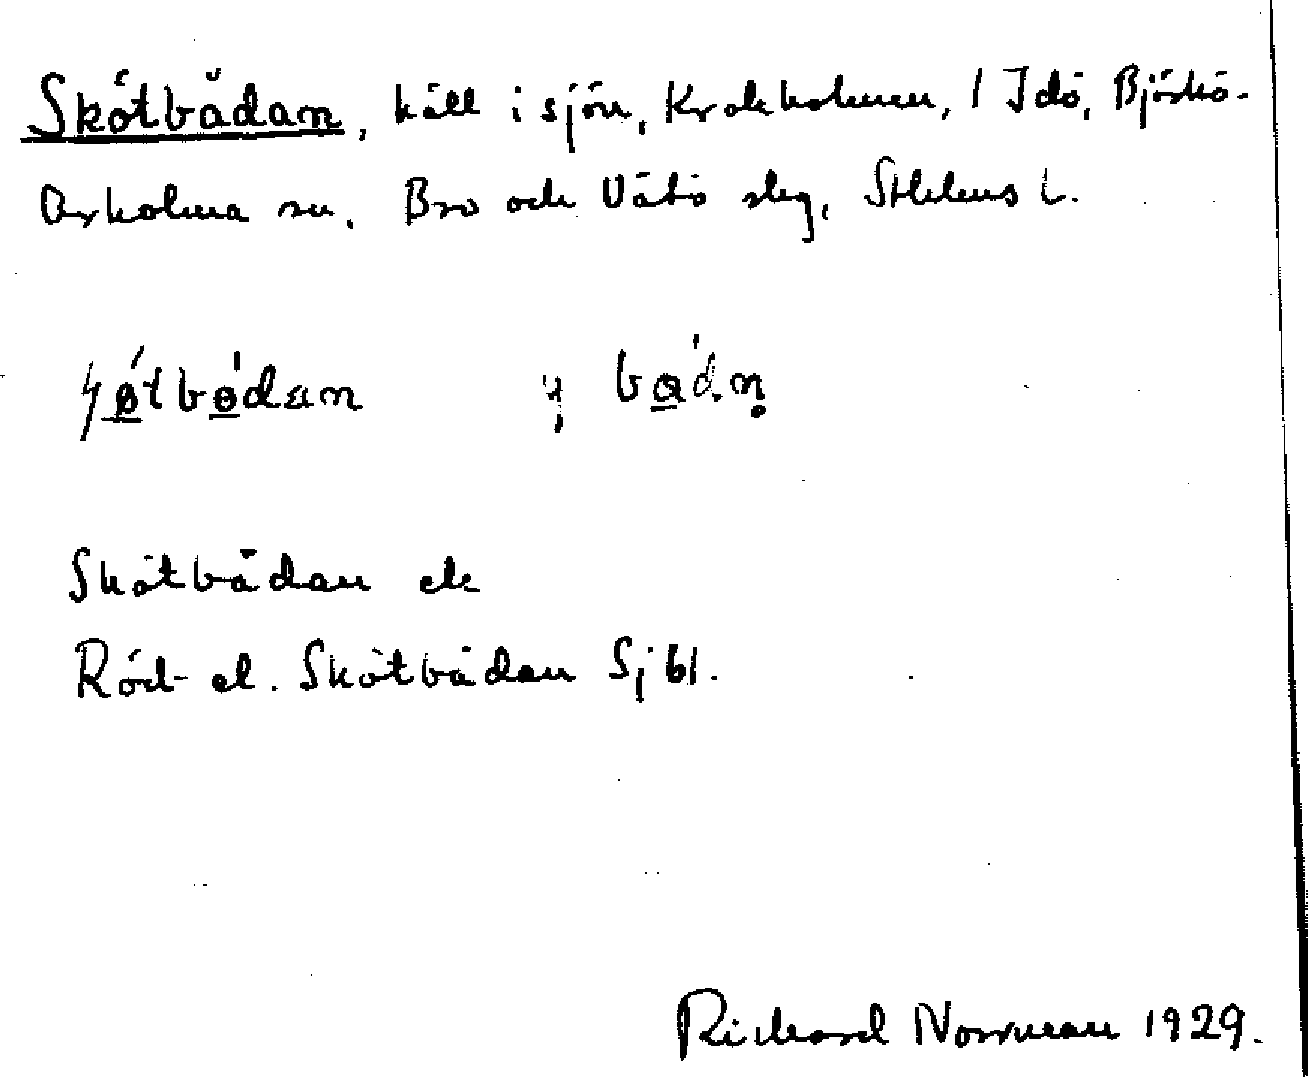 Skötbådan, häll i sjön, Krokholmen, 1 Idö, Björkö-
Arholma sn. Bro och Vätö slg, Sthlms l.
bådn̥
Skötbådan ek
Röd- el. Skötbådan Sj 61.
Richard Norrman 1929.